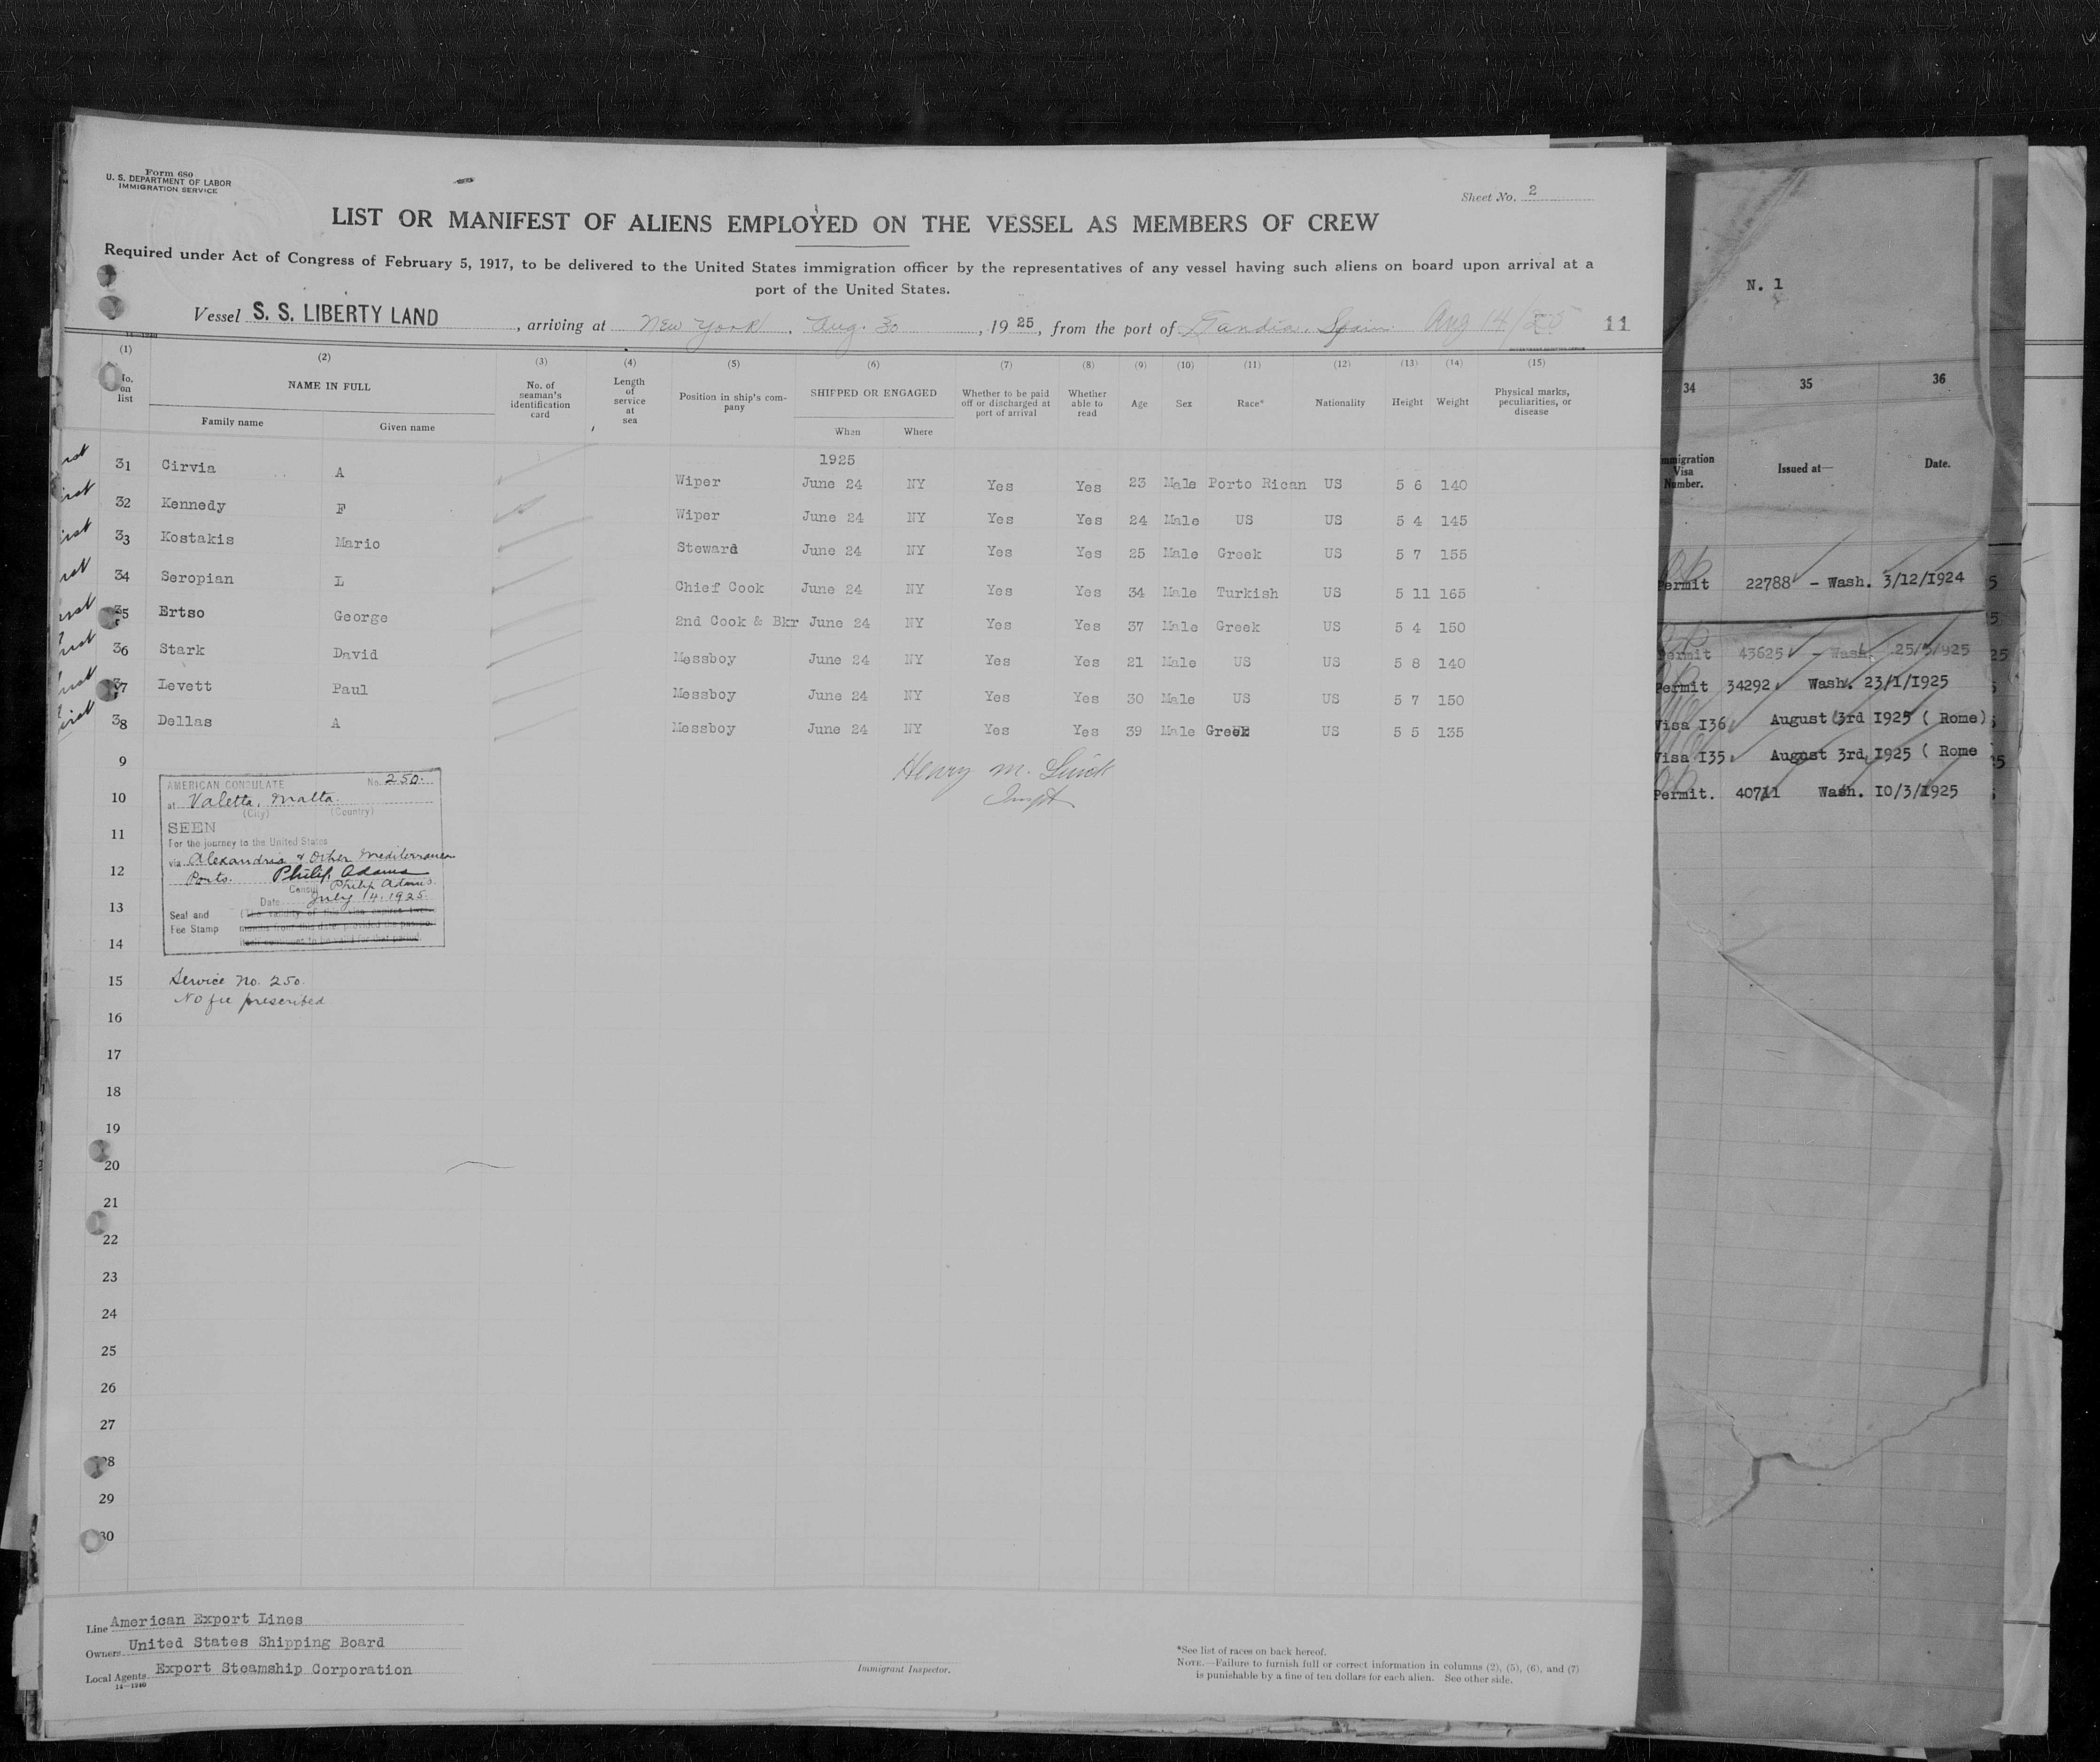 Form 680
U. S. DEPARTMENT OF LABOR
IMMIGRATION SERVICE
Sheet No. 2
LIST OR MANIFEST OF ALIENS EMPLOYED ON THE VESSEL AS MEMBERS OF CREW
Required under Act of Congress of February 5, 1917, to be delivered to the United States immigration officer by the representatives of any vessel having such aliens on board upon arrival at a
port of the United States.
Vessel S. S. LIBERTY LAND, arriving at New York, Aug. 30, 1925, from the port of Gandia, Spain Aug 14/25 11
(1) (2) (3) (4) (5) (6) (7) (8) (9) (10) (11) (12) (13) (14) (15)
No. on list NAME IN FULL Family name Given name No. of seaman's identification card Length of service at sea Position in ship's company SHIPPED OR ENGAGED When Where Whether to be paid off or discharged at port of arrival Whether able to read Age Sex Race* Nationality Height Weight Physical marks, peculiarities, or disease
1925
31 Cirvia A Wiper June 24 NY Yes Yes 23 Male Porto Rican US 5 6 140
32 Kennedy F Wiper June 24 NY Yes Yes 24 Male US US 5 4 145
33 Kostakis Mario Steward June 24 NY Yes Yes 25 Male Greek US 5 7 155
34 Seropian L Chief Cook June 24 NY Yes Yes 34 Male Turkish US 5 11 165
35 Ertso George 2nd Cook & Bkr June 24 NY Yes Yes 37 Male Greek US 5 4 150
36 Stark David Messboy June 24 NY Yes Yes 21 Male US US 5 8 140
37 Levett Paul Messboy June 24 NY Yes Yes 30 Male US US 5 7 150
38 Dellas A Messboy June 24 NY Yes Yes 39 Male Greek US 5 5 135
9
Henry M.
10
11
12
13
14
AMERICAN CONSULATE No. 250.
at Valetta, Malta.
(City) (Country)
SEEN
For the journey to the United States
via Alexandria & Other Mediterranean
Ports. Philip Adams
Consul Philip Adams.
Date July 14, 1925.
Seal and
Fee Stamp
(The validity of this visa expires twelve
months from this date, provided the passport
itself continues to be valid for that period.
15
Service No. 250.
No fee prescribed
16
17
18
19
20
21
22
23
24
25
26
27
28
29
30
Line American Export Lines
Owners United States Shipping Board
Local Agents Export Steamship Corporation
14—1240
Immigrant Inspector.
*See list of races on back hereof.
NOTE.—Failure to furnish full or correct information in columns (2), (5), (6), and (7)
is punishable by a fine of ten dollars for each alien. See other side.
N. 1
34 35 36
Immigration Visa Number. Issued at— Date.
Permit 22788 - Wash. 3/12/1924
Permit 43625 - Wash. 25/5/1925
Permit 34292 Wash. 23/1/1925
Visa I36 August 3rd 1925 ( Rome)
Visa I35 August 3rd 1925 ( Rome
Permit. 40711 Wash. 10/3/1925